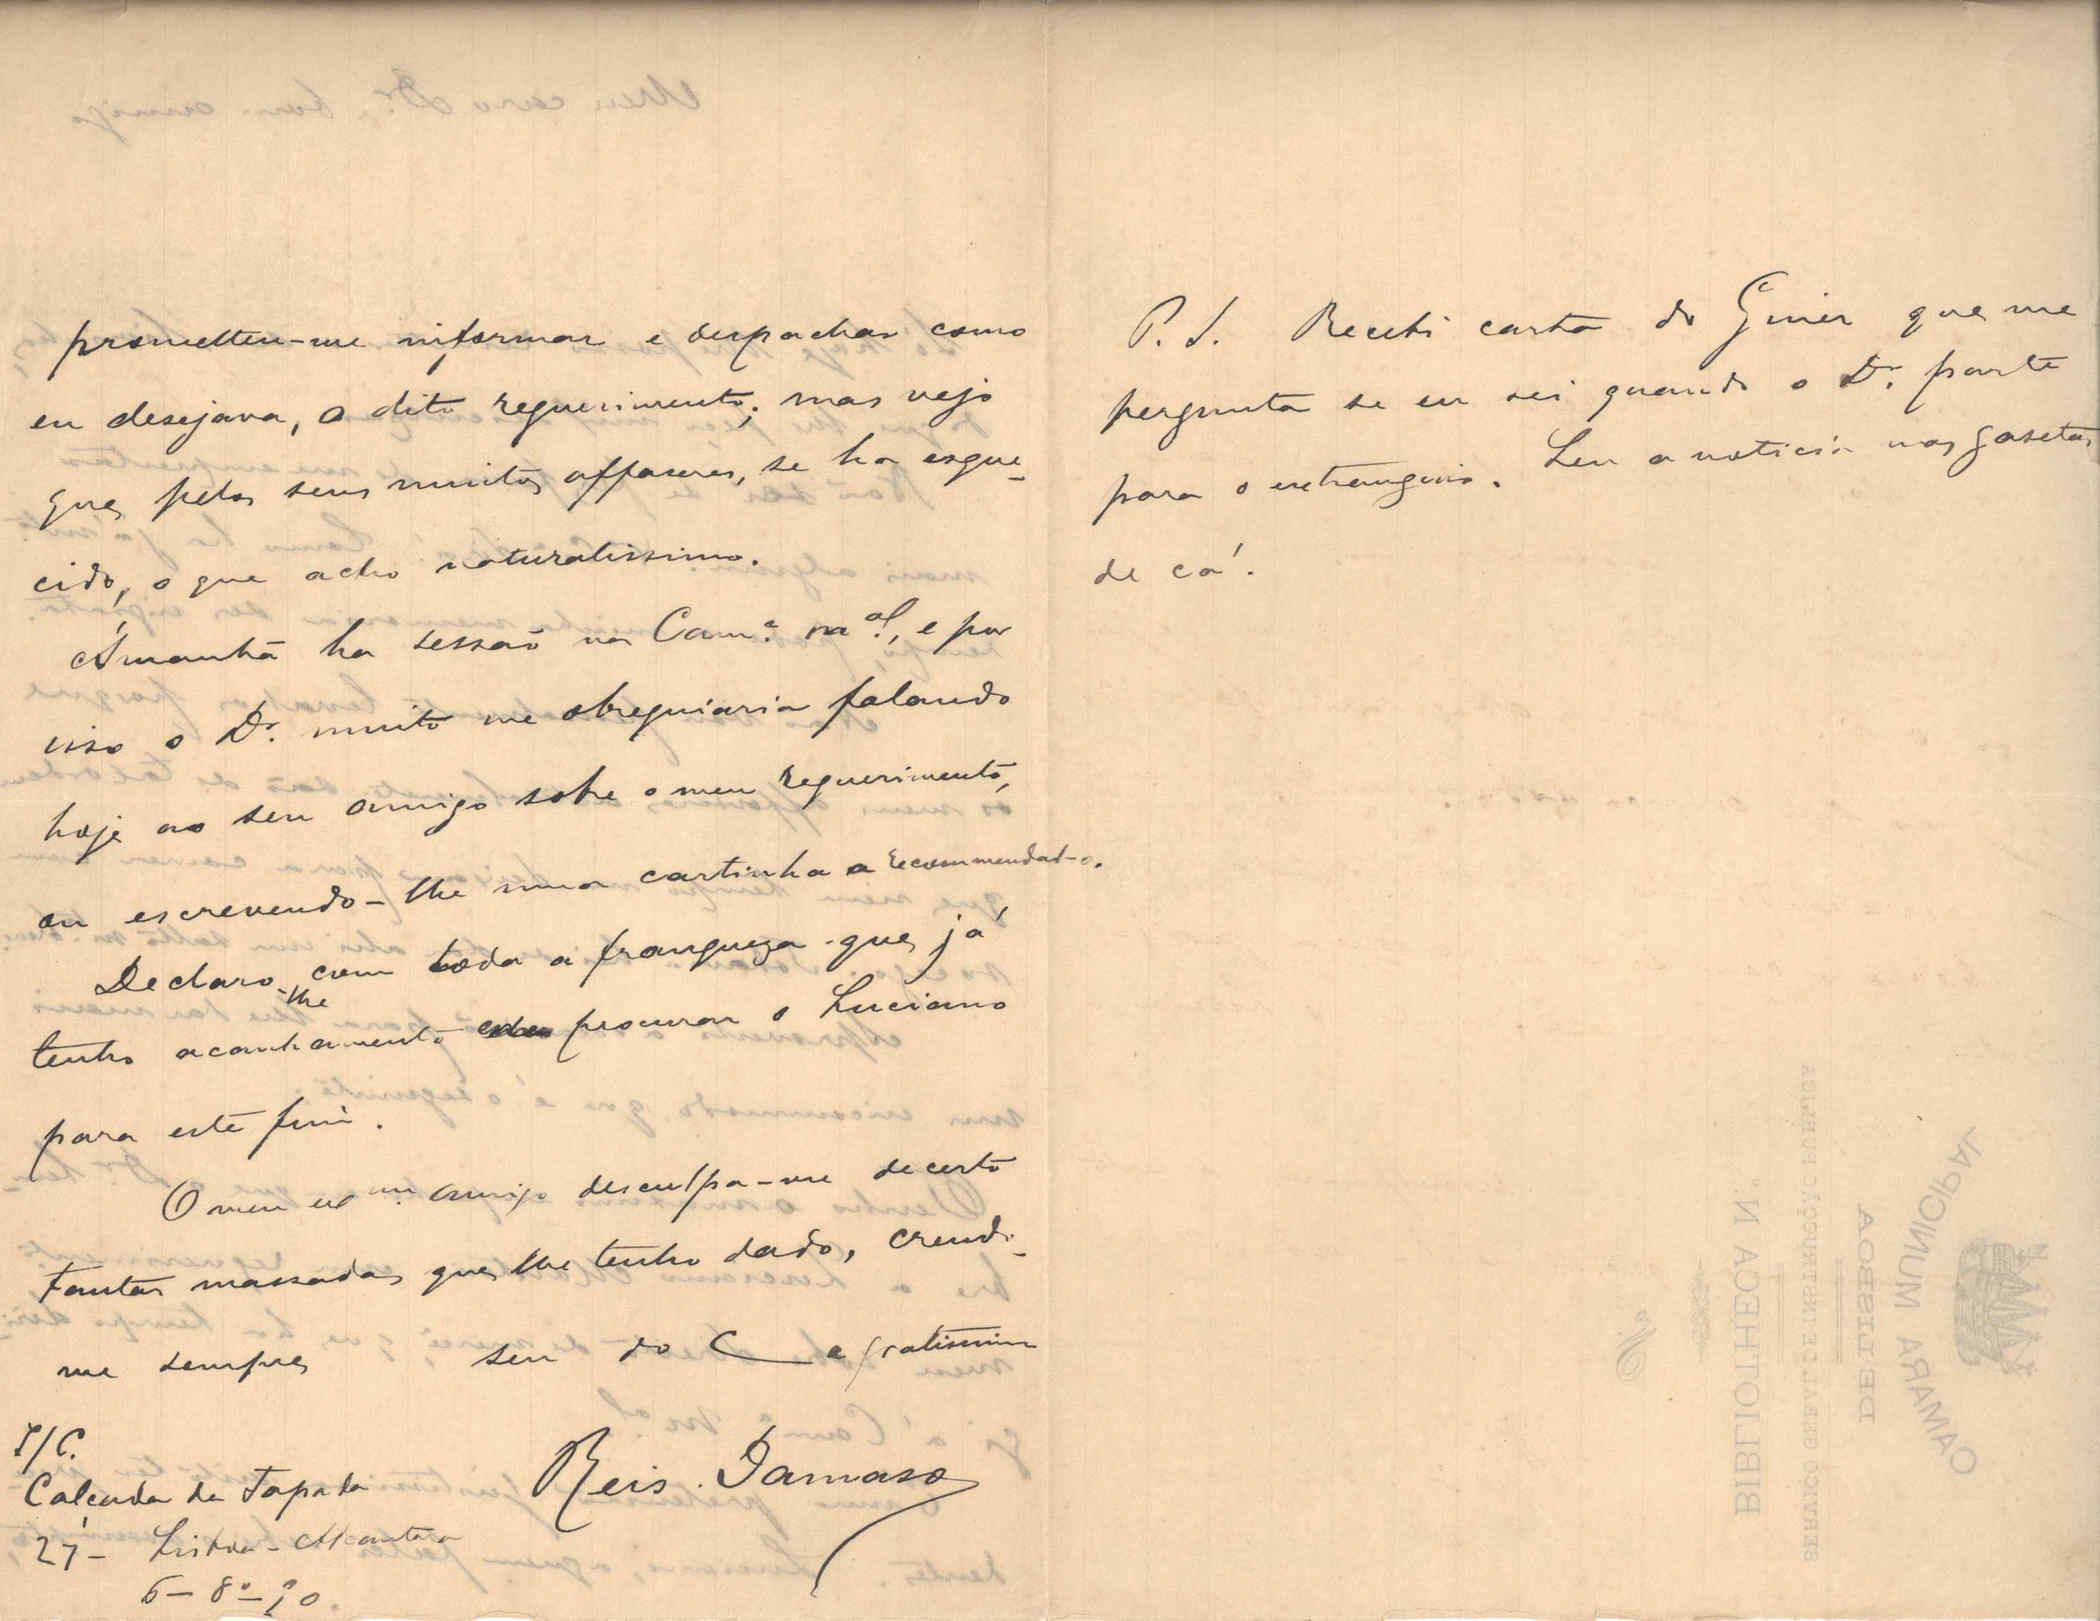 prometteu-me informar e despachar como
eu desejava, o dito requerimento; mas vejo
que, pelos seus muitos affazeres, se ha esque-
cido, o que acho naturalissimo.
Ámanhã ha sessão na Cam.ª m.al, e por
isso o Dr. muito me obsequiaria falando
hoje ao seu amigo sobre o meu requerimento,
ou escrevendo-lhe uma cartinha a recommendal-o.
Declaro-lhe com toda a franqueza que já
tenho acanhamento procurar o Luciano
para este fim.
O meu amigo desculpa-me decerto
tantas massadas que lhe tenho dado, crendo-
me sempre seu do C
Reis Damaso
S/C.
Calçada da Tapada
27- Lisboa-Alcantara
6-8º-90.
P.S. Recebi carta do Giner que me
pergunta se eu sei quando o Dr. parte
para o extrangeiro. Leu a noticia nas gasetas
de cá.
CAMARA MUNICIPAL
DE LISBOA
SERVIÇO GERAL DE INSTRUCÇÃO PUBLICA
BIBLIOTHECA N.º